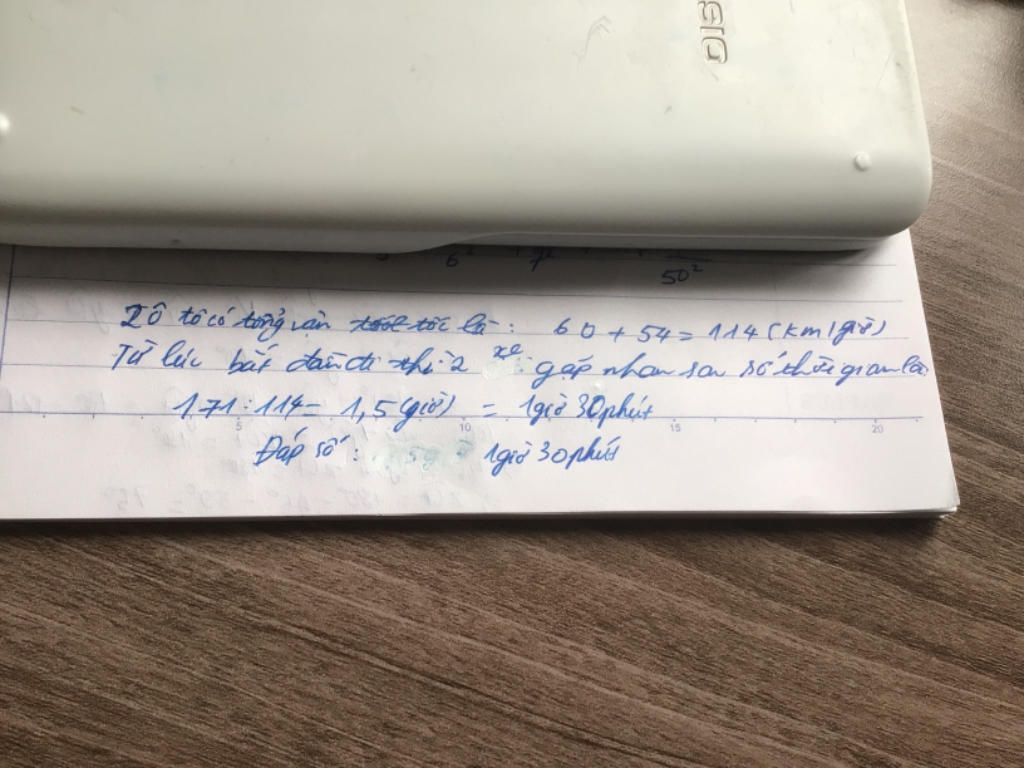 CASIO
6² 7² 50²
2 ô tô có tổng vận tốc là: 60 + 54 = 114 (km/giờ)
Từ lúc bắt đầu đi thì 2 xe gặp nhau sau số thời gian là
171 : 114 = 1,5 (giờ) = 1 giờ 30 phút
5 10 15 20
Đáp số: 1 giờ 30 phút